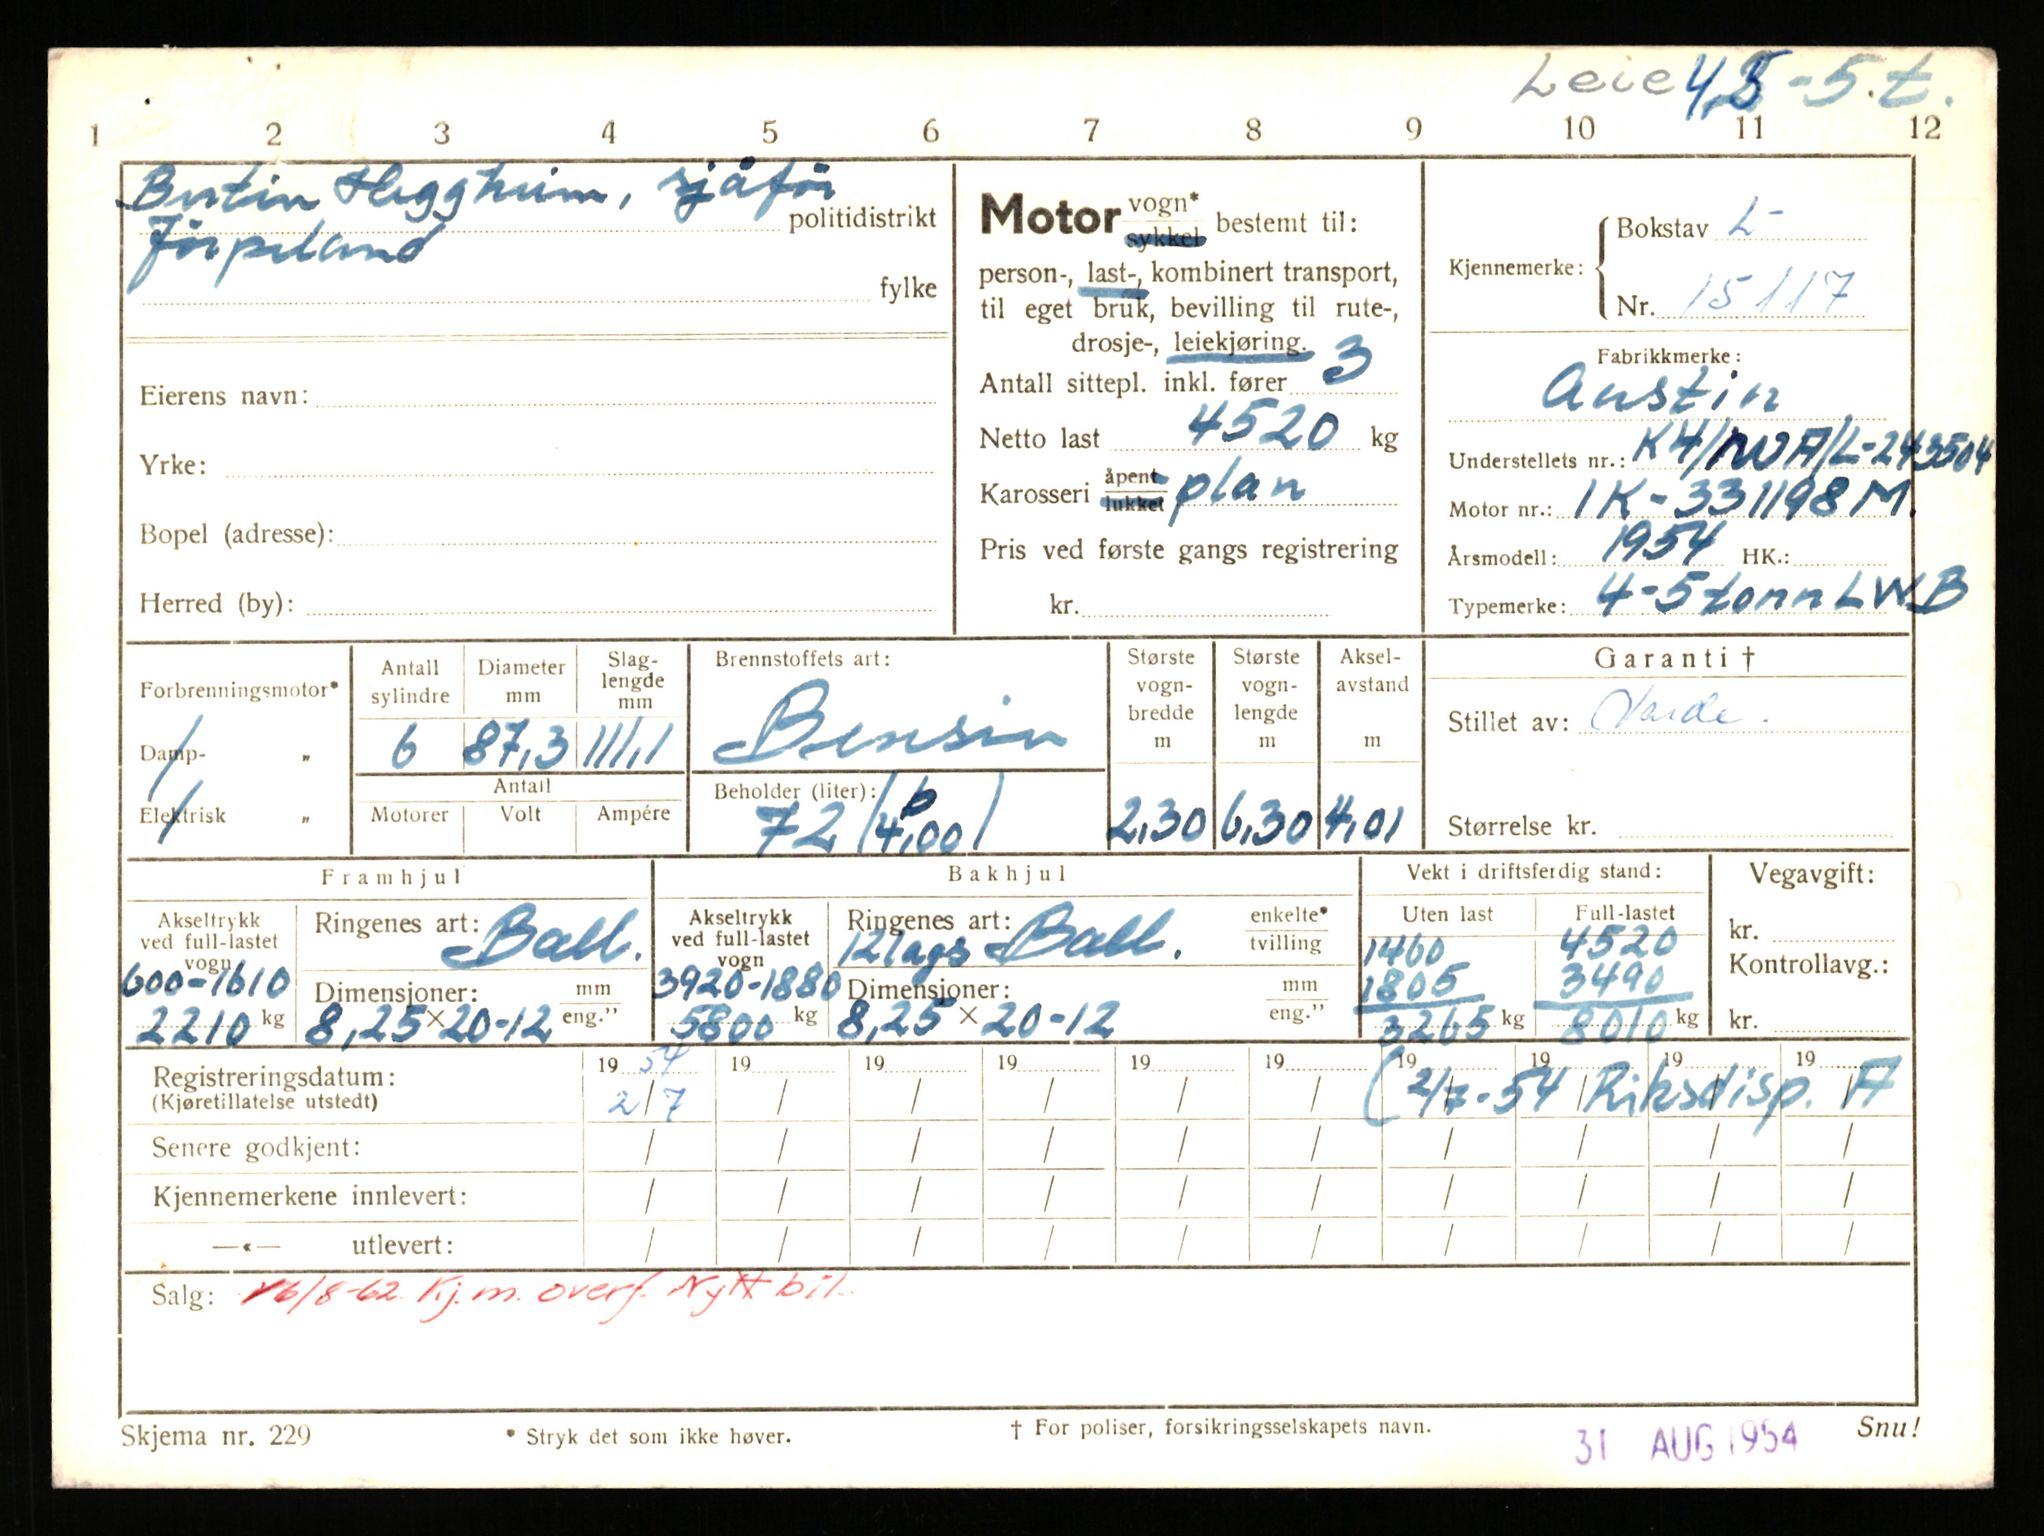 Leie 4,5-5.t.
1 2 3 4 5 6 7 8 9 10 11 12
Bertin Heggheim, sjåfør
politidistrikt
Jörpeland
fylke
Eierens navn:
Yrke:
Bopel (adresse):
Herred (by):
Motor vogn* sykkel bestemt til:
person-, last-, kombinert transport,
til eget bruk, bevilling til rute-,
drosje-, leiekjøring.
Antall sittepl. inkl. fører 3
Netto last 4520 kg
Karosseri åpent lukket plan
Pris ved første gangs registrering
kr.
Kjennemerke: Bokstav L-
Nr. 15117
Fabrikkmerke:
Austin
Understellets nr.: K4/NVA/L-243504
Motor nr.: 1K-331198M.
Årsmodell: 1954 HK.:
Typemerke: 4-5tonn LWB
Forbrenningsmotor*
Damp- „
Elektrisk „
Antall sylindre Diameter mm Slag-lengde mm
6 87,3 111,1
Antall
Motorer Volt Ampére
Brennstoffets art:
Bensin
Beholder (liter):
72 (b 4,00)
Største vogn-bredde m Største vogn-lengde m Aksel-avstand m
2,30 6,30 4,01
Garanti †
Stillet av: Varde.
Størrelse kr.
Framhjul
Akseltrykk ved full-lastet vogn
600-1610
2210 kg
Ringenes art: Ball.
Dimensjoner: mm eng."
8,25×20-12
Bakhjul
Akseltrykk ved full-lastet vogn
3920-1880
5800 kg
Ringenes art: enkelte* tvilling
12lags Ball.
Dimensjoner: mm eng."
8,25 × 20-12
Vekt i driftsferdig stand:
Uten last Full-lastet
1460 4520
1805 3490
3265 kg 8010 kg
Vegavgift:
kr.
Kontrollavg.:
kr.
Registreringsdatum: 19 54 19 19 19 19 19 19 19 19 19
(Kjøretillatelse utstedt) 2/7 / / / / / (2/7-54 Riksdisp. A
Senere godkjent: / / / / / / / / / /
Kjennemerkene innlevert: / / / / / / / / / /
—«— utlevert: / / / / / / / / / /
Salg: 16/8-62. Kj.m. overf. Nytt bil.
Skjema nr. 229 * Stryk det som ikke høver. † For poliser, forsikringsselskapets navn. 31 AUG 1954 Snu!